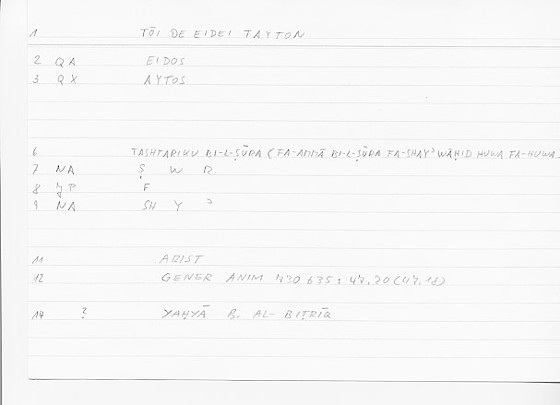 1 TŌI DE EIDEI TAYTON
2 QA EIDOS
3 QX AYTOS
6 TASHTARIKU BI-L-ṢŪRA (FA-AMMĀ BI-L-ṢŪRA FA-SHAYʾ WĀḤID HUWA FA-HUWA
7 NA Ṣ W R
8 F
9 NA SH Y ʾ
11 ARIST
12 GENER ANIM 730 B35: 47.20 (47.18)
14 ? YAḤYĀ B. AL-BIṬRĪQ